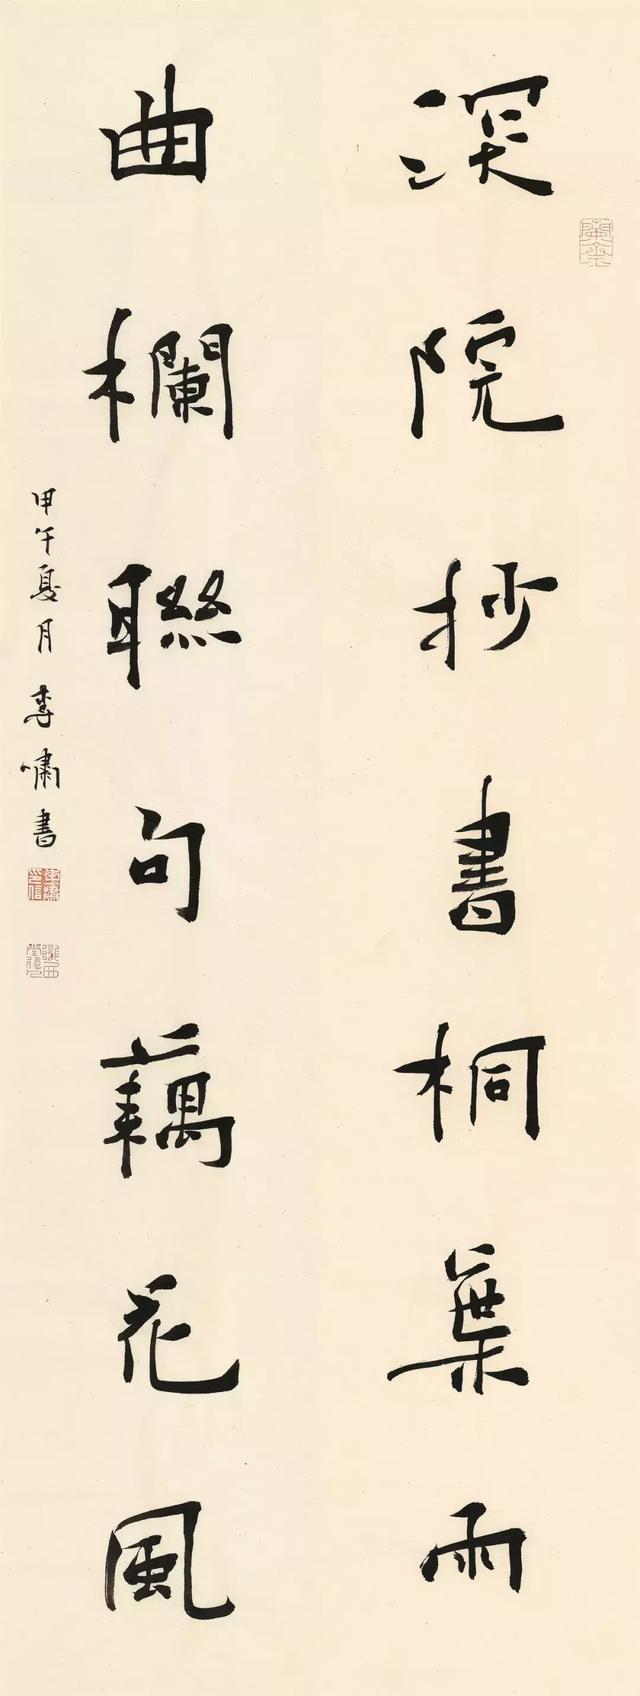 深院抄書桐葉雨
曲欄聯句藕花風
甲午夏月李嘯書